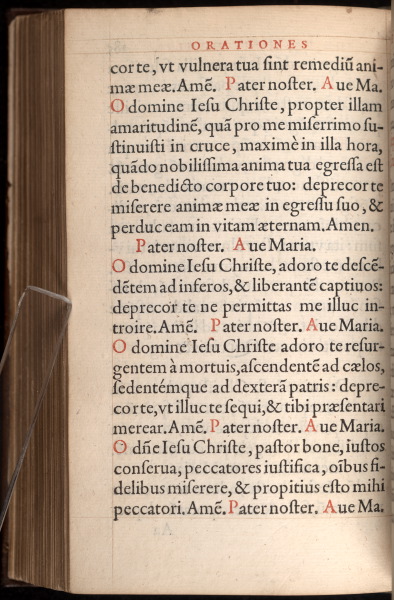 ORATIONES
cor te, vt vulnera tua ſint remediũ ani-
mæ meæ. Amẽ. Pater noſter. Aue Ma.
O domine Ieſu Chriſte, propter illam
amaritudinẽ, quã pro me miſerrimo ſu-
ſtinuiſti in cruce, maximè in illa hora,
quãdo nobiliſſima anima tua egreſſa eſt
de benedicto corpore tuo: deprecor te
miſerere animæ meæ in egreſſu ſuo, &
perduc eam in vitam æternam. Amen.
Pater noſter. Aue Maria.
O domine Ieſu Chriſte, adoro te deſcẽ-
dẽtem ad inferos, & liberantẽ captiuos:
deprecor te ne permittas me illuc in-
troire. Amẽ. Pater noſter. Aue Maria.
O domine Ieſu Chriſte adoro te reſur-
gentem à mortuis, aſcendentẽ ad cælos,
ſedentémque ad dexterã patris: depre-
cor te, vt illuc te ſequi, & tibi præſentari
merear. Amẽ. Pater noſter. Aue Maria.
O dñe Ieſu Chriſte, paſtor bone, iuſtos
conſerua, peccatores iuſtifica, oĩbus fi-
delibus miſerere, & propitius eſto mihi
peccatori. Amẽ. Pater noſter. Aue Ma.